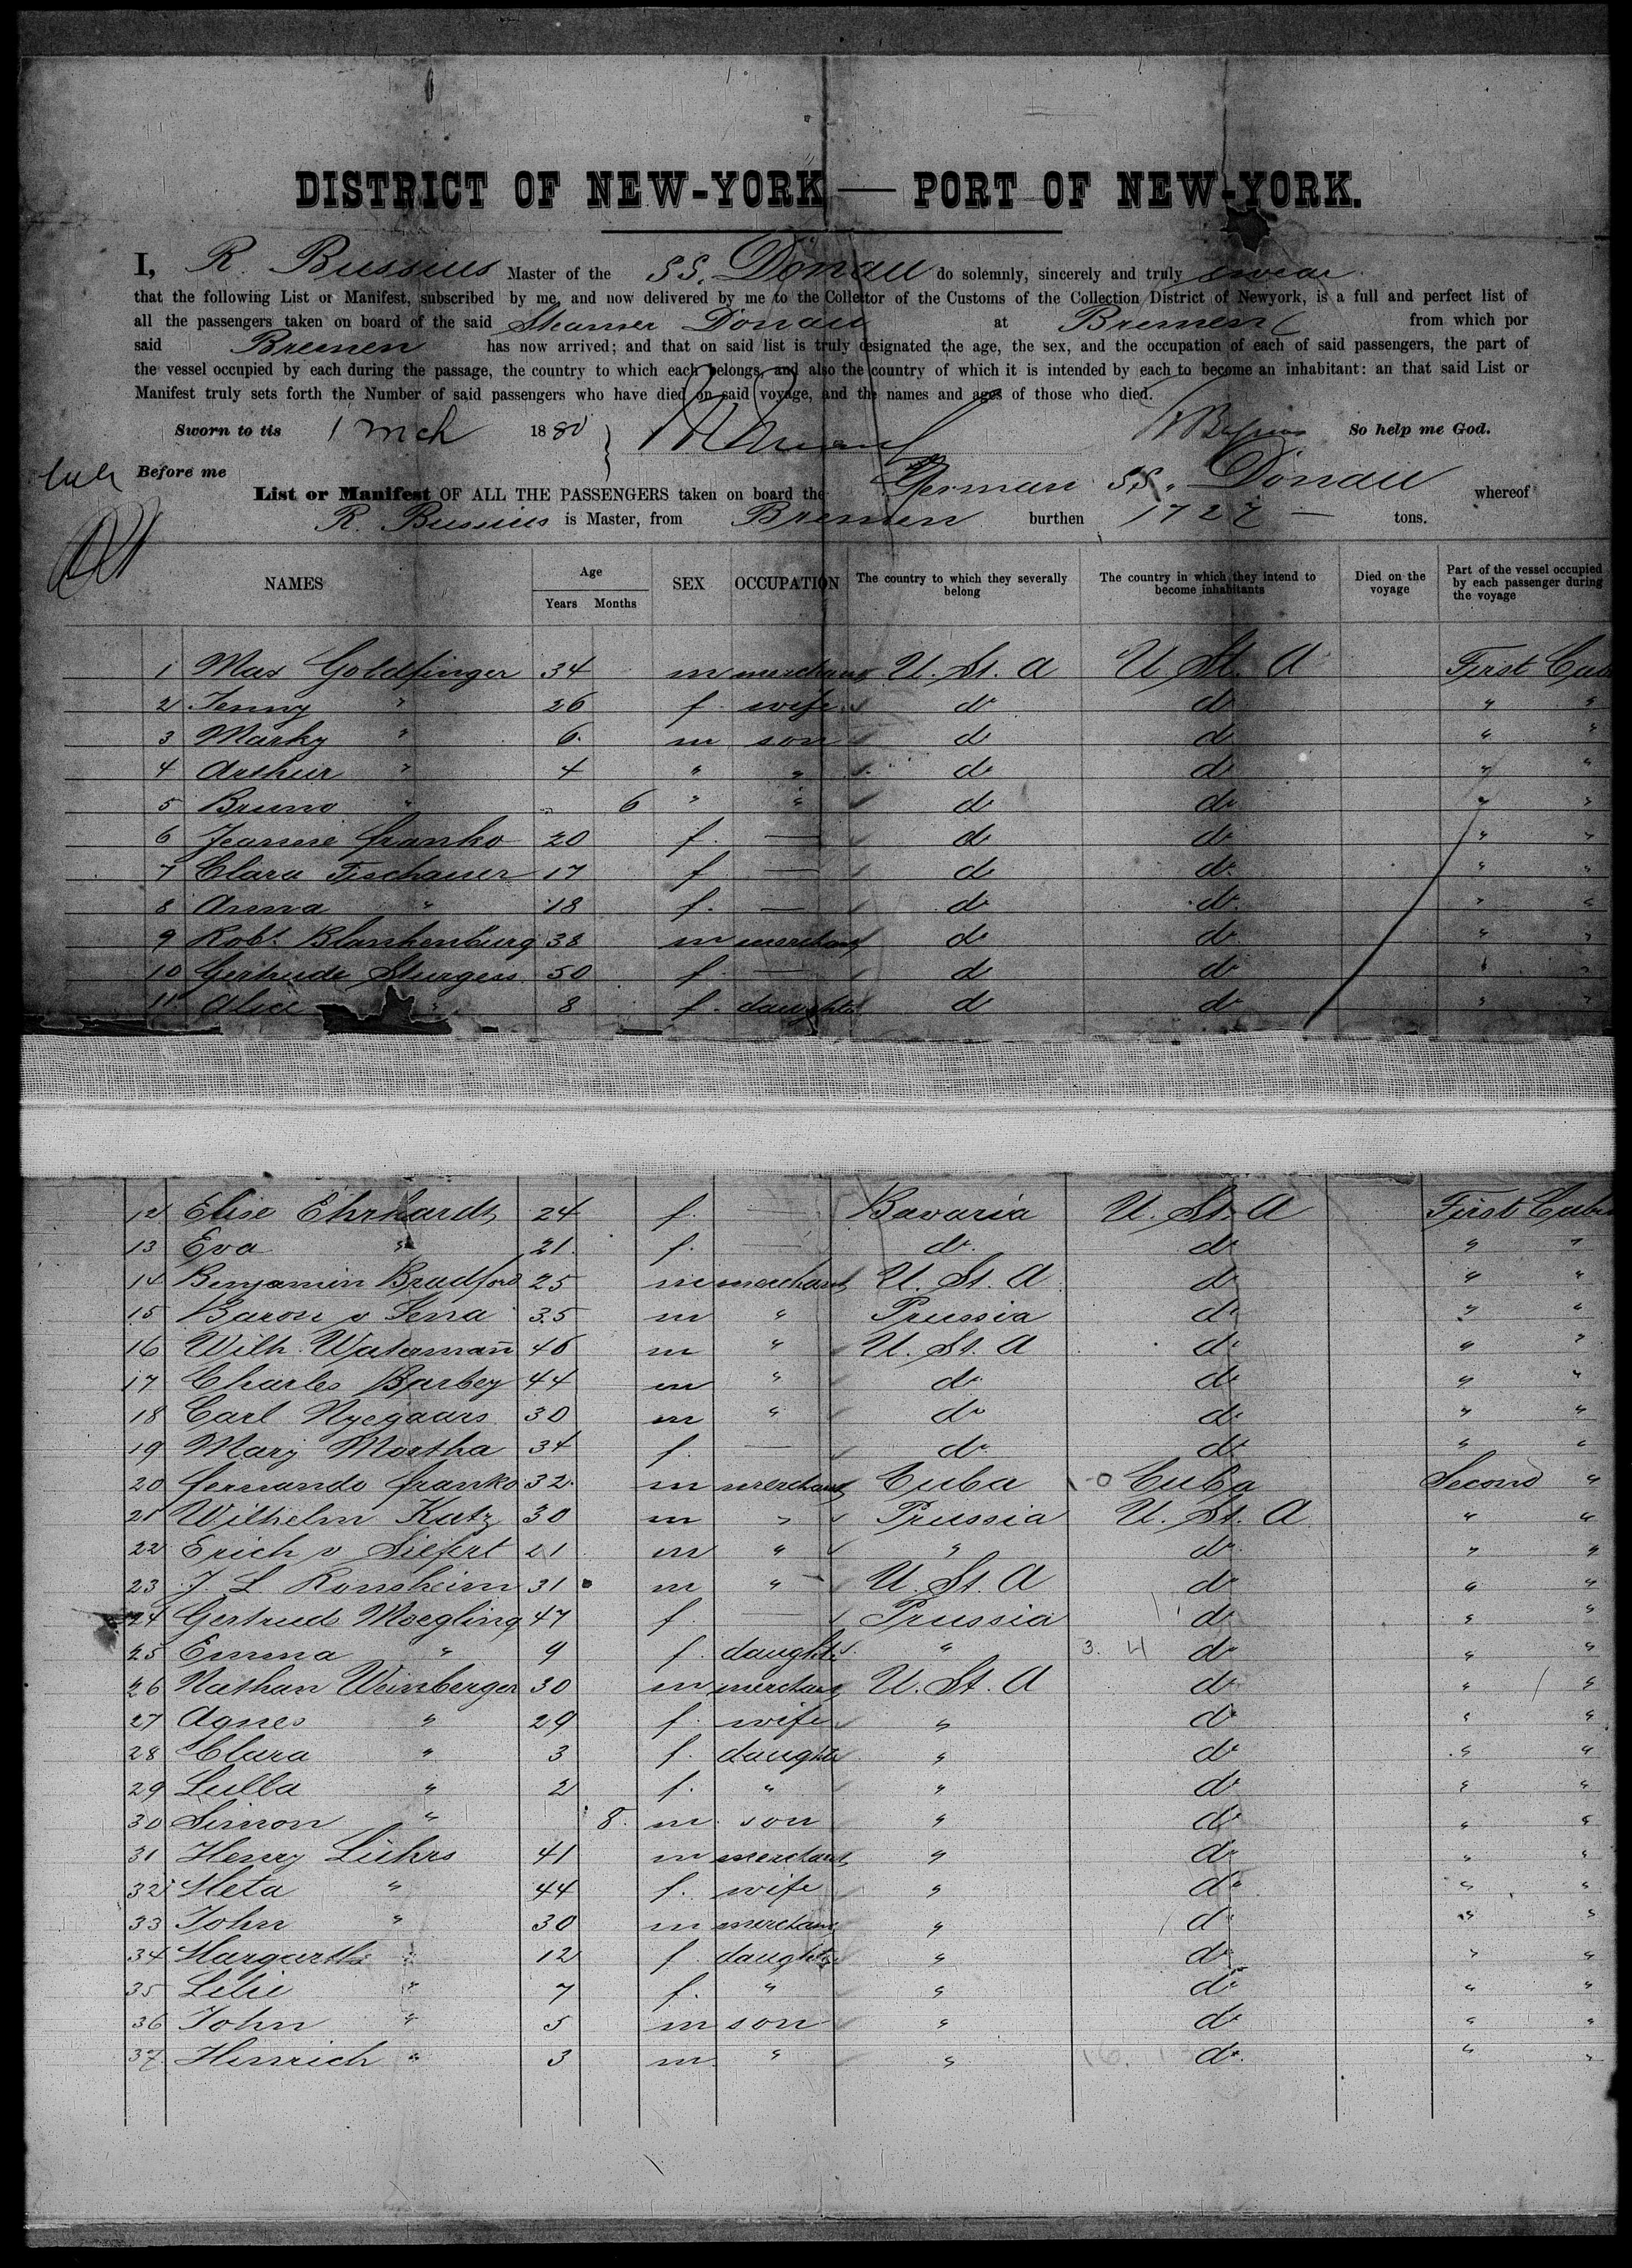 DISTRICT OF NEW-YORK — PORT OF NEW-YORK.
I, R. Bussius Master of the SS. Donau do solemnly, sincerely and truly swear
that the following List or Manifest, subscribed by me, and now delivered by me to the Collector of the Customs of the Collection District of Newyork, is a full and perfect list of
all the passengers taken on board of the said Steamer Donau at Bremen from which por
said Bremen has now arrived; and that on said list is truly designated the age, the sex, and the occupation of each of said passengers, the part of
the vessel occupied by each during the passage, the country to which each belongs, and also the country of which it is intended by each to become an inhabitant: an that said List or
Manifest truly sets forth the Number of said passengers who have died on said voyage, and the names and ages of those who died.
Sworn to tis 1 Mch 1880 So help me God.
Before me
List or Manifest OF ALL THE PASSENGERS taken on board the German SS. Donau whereof
R. Bussius is Master, from Bremen burthen 1727 — tons.
NAMES Age Years Months SEX OCCUPATION The country to which they severally belong The country in which they intend to become inhabitants Died on the voyage Part of the vessel occupied by each passenger during the voyage
1 Max Goldfinger 34 m merchant U. St. A U. St. A First Cab
2 Jenny " 26 f. wife do do " "
3 Marky " 6 m son do do " "
4 Arthur " 4 " " do do " "
5 Bruno " 6 " " do do " "
6 Jeanne Franko 20 f. — do do " "
7 Clara Tischauer 17 f — do do " "
8 Anna " 18 f. — do do " "
9 Robt. Blankenburg 38 m merchant do do " "
10 Gertrude Sturgess 50 f. — do do " "
11 Alice " 8 f. daughter do do " "
12 Elise Ehrhardt 24 f. — Bavaria U. St. A First Cabin
13 Eva " 21 f. — do do " "
14 Benjamin Bradford 25 m merchant U. St. A do " "
15 Baron v 35 m " Prussia do " "
16 Wilh. Watermañ 46 m " U. St. A do " "
17 Charles Barbey 44 m " do do " "
18 Carl Nyegaars 30 m " do do " "
19 Mary Martha 34 f. — do do " "
20 Fernando Franko 32 m merchant Cuba Cuba Second "
21 Wilhelm Katz 30 m " Prussia U. St. A " "
22 Erich v Siefert 21 m " " do " "
23 J. L Ronsheim 31 m " U. St. A do " "
24 Gertrude Moegling 47 f. — Prussia do " "
25 Emma " 9 f. daughter " 3. 4 do " "
26 Nathan Weinberger 30 m merchant U. St. A do " "
27 Agnes " 29 f. wife " do " "
28 Clara " 3 f. daughter " do " "
29 Lulla " 2 f. " " do " "
30 Simon " 8. m. son " do " "
31 Henry Lührs 41 m merchant " do " "
32 Meta " 44 f. wife " do " "
33 John " 30 m merchant " do " "
34 Margarthe " 12 f daughter " do " "
35 Lilie " 7 f. " " do " "
36 John " 5 m son " do " "
37 Hinrich " 3 m " " do " "